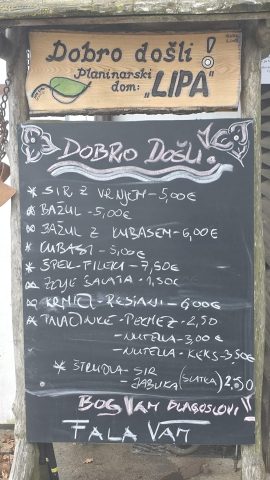 Dobro došli!
Planinarski
dom: „LIPA”
DOBRO DOŠLI!
* SIR Z VRHJEM - 5,00€
* BAŽUL - 5,00€
* BAŽUL Z LUBASEM - 6,00€
* LUBASI - 5,00€
* ŠPEK-FILEKI - 7,50€
* ZELJE SALATA - 1,50€
* - 6,00€
* PALAČINKE - PEKMEZ - 2,50
- NUTELLA - 3,00€
- NUTELLA - KEKS - 3,50€
* ŠTRUDLA - SIR
- JABUKA (SLATKA) 2,50
BOG VAM BLAGOSLOVI!!
FALA VAM